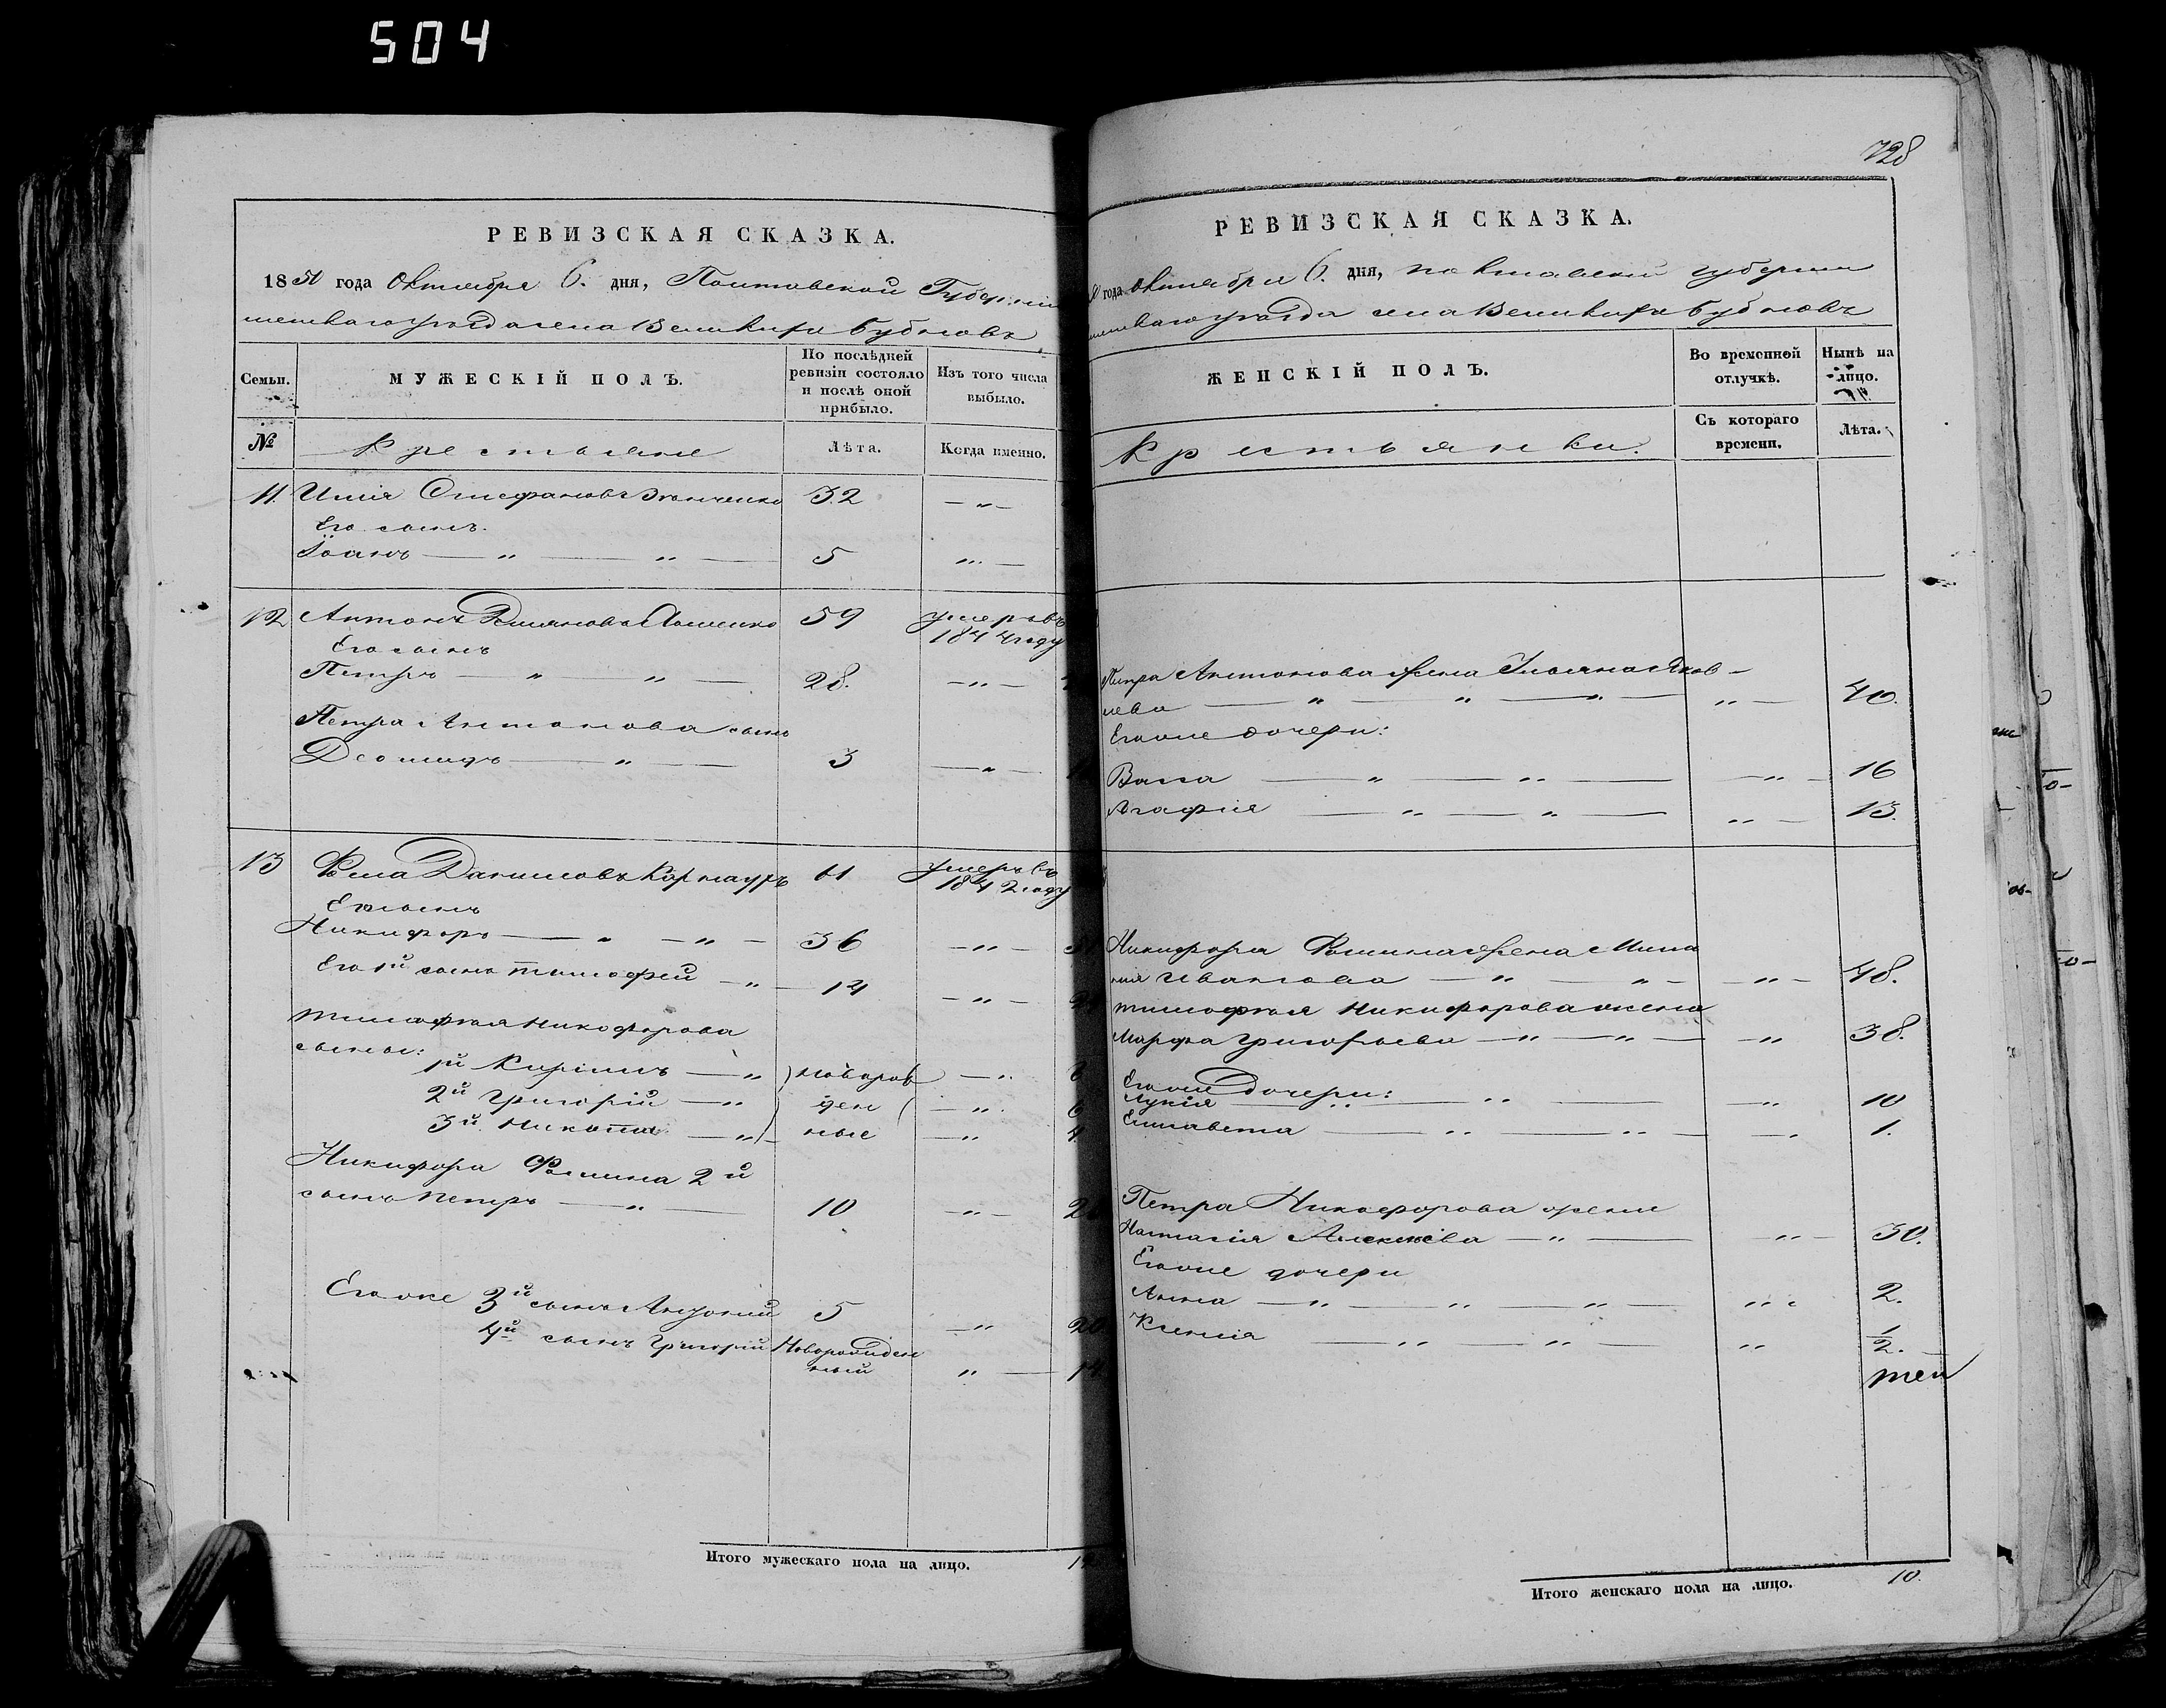 504
РЕВИЗСКАЯ СКАЗКА.
1850 года Октября 6. дня, Полтавской Губерніи
села Великихъ Бубновъ
Семьи.
МУЖЕСКІЙ ПОЛЪ.
По послѣдней ревизіи состояло и послѣ оной прибыло.
Изъ того числа выбыло.
№
Крестьяне
Лѣта.
Когда именно.
11. Илія Стефановъ 32 — " —
Его сынъ.
Іоанъ — " — " — 5 " —
12 Антонъ 59 умеръ въ 1844 году
Его сынъ
Петръ — " — " — 28. — " —
Петра Антонова сынъ
Деомидъ — " — 3 — " —
13 Фома Даниловъ 61 умеръ въ 1842 году
Его сынъ
Никифоръ — " — " — 36 — " —
Его 1й сынъ Тимофей — " — 14 — " —
Тимофея Никифорова
сыны:
1й Кирилъ — " новорож — "
2й Григорій — " ден — "
3й Никита — " ные — "
Никифора Фомина 2й
сынъ Петръ — " — 10 — " —
Его же 3й сынъ Андрей 5 — "
4й сынъ Григорій Новорожден
ный " —
Итого мужескаго пола на лицо.
728
РЕВИЗСКАЯ СКАЗКА.
года Октября 6. дня, Полтавской губерніи
уѣзда села Великихъ Бубновъ
ЖЕНСКІЙ ПОЛЪ.
Во временной отлучкѣ.
Нынѣ на лицо.
Крестьянки.
Съ котораго времени.
Лѣта.
Петра Антонова жена Ульяна Яков-
лева — " — " — " — " — 40.
Его же дочери:
Васса — " — " — — " — 16
Агафія — " — " — " — 13.
Никифора Фомина жена Мила
нія Иванова — " — " — — " — 48.
Тимофея Никифорова жена
Марфа Григорьева — " — " — — " 38.
Его же дочери:
Лукія — " — " — — " 10
Елисавета — " — " — — " 1.
Петра Никифорова жена
Настасія Алексіева — " — — " — 30.
Его же дочери
Анна — " — " — " — " 2.
Ксенія — " — " — " 1/2.
Итого женскаго пола на лицо. 10.